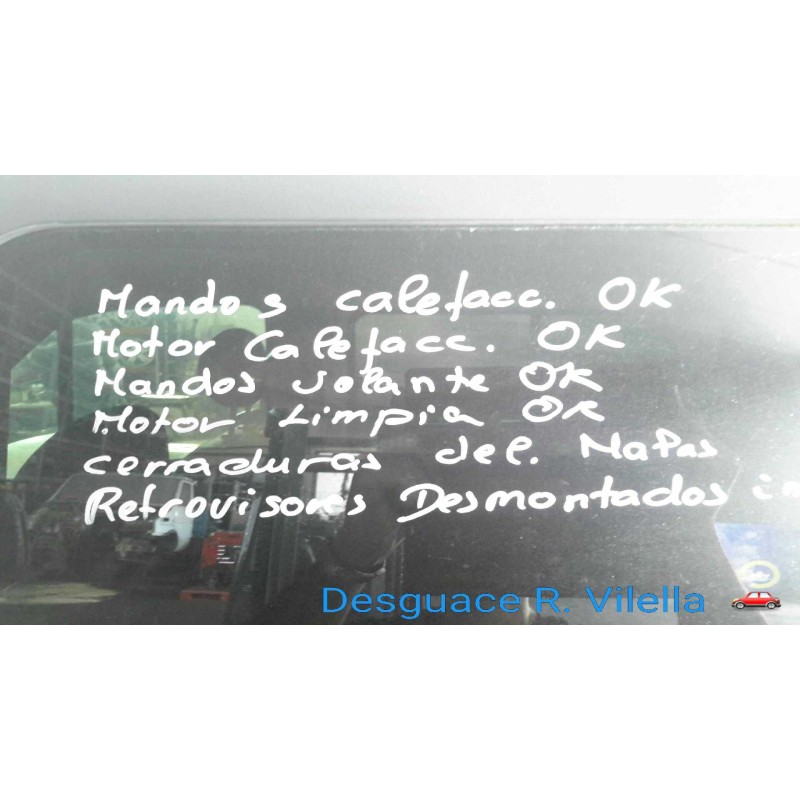 Mandos calefacc. OK
Motor Calefacc. OK
Mandos volante OK
Motor Limpia OK
cerraduras del. Malas
Retrovisores Desmontados
Desguace R. Vilella